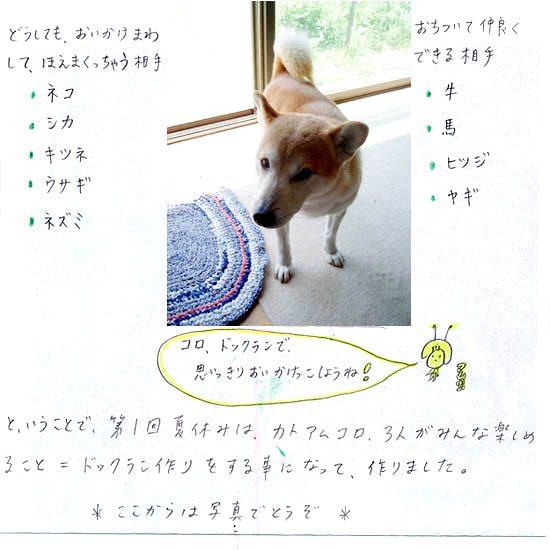 どうしても、おいかけまわ
して、ほえまくっちゃう相手
・ネコ
・シカ
・キツネ
・ウサギ
・ネズミ
おちついて仲良く
できる相手
・牛
・馬
・ヒツジ
・ヤギ
コロ、ドックランで、
思いっきりおいかけっこしようね!
と、いうことで、第1回夏休みは、カトアムコロ、3人がみんな楽しめ
ること=ドックラン作りをする事になって、作りました。
*ここからは写真でどうぞ*